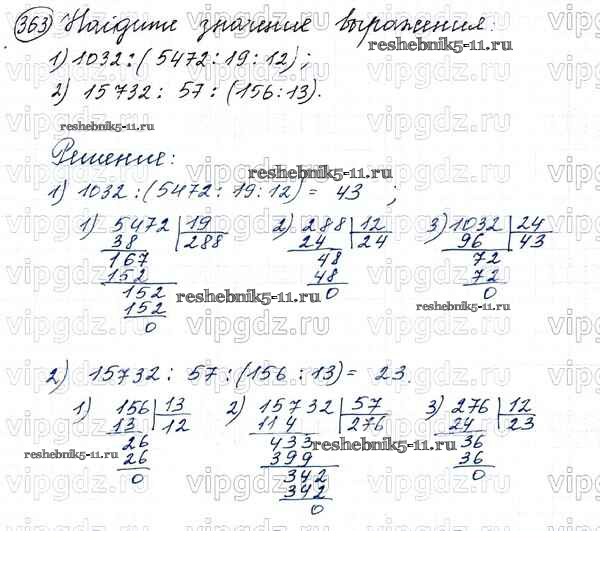 363 Найдите значение выражения:
reshebnik5-11.ru
1) 1032 : (5472 : 19 : 12);
2) 15732 : 57 : (156 : 13).
reshebnik5-11.ru
vipgdz.ru
Решение:
reshebnik5-11.ru
1) 1032 : (5472 : 19 : 12) = 43 ;
1) 5472 | 19 2) 288 | 12 3) 1032 | 24
38 288 24 24 96 43
167 48 72
152 48 72
152 0 0
152
0
reshebnik5-11.ru
reshebnik5-11.ru
vipgdz.ru
2) 15732 : 57 : (156 : 13) = 23.
1) 156 | 13 2) 15732 | 57 3) 276 | 12
13 12 114 276 24 23
26 433 36
26 399 36
0 342 0
342
0
reshebnik5-11.ru
reshebnik5-11.ru
reshebnik5-11.ru
vipgdz.ru